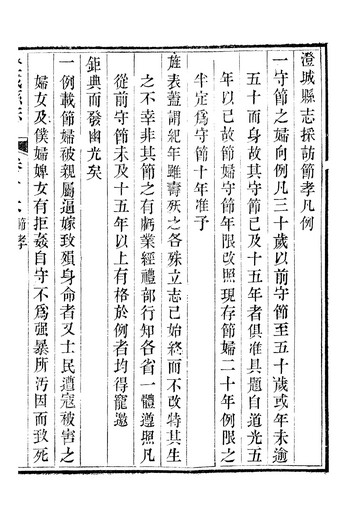 澄城縣志採訪節孝凡例
一守節之婦向例凡三十歲以前守節至五十歲或年未逾
五十而身故其守節已及十五年者俱准具題自道光五
年以已故節婦守節年限改照現存節婦二十年例限之
半定為守節十年准予
旌表蓋謂紀年雖壽殀之各殊立志已始終而不改特其生
之不幸非其節之有虧業經禮部行知各省一體遵照凡
從前守節未及十五年以上有格於例者均得寵邀
鉅典而發幽光矣
一例載節婦被親屬逼嫁致殞身命者又士民遭寇被害之
婦女及僕婦婢女有拒姦自守不為强暴所汚因而致死
節孝